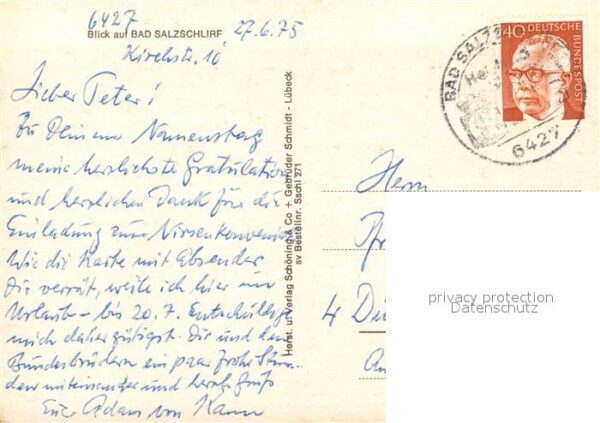 6427
Blick auf BAD SALZSCHLIRF
27.6.75
Kirchstr. 10
Lieber Peter!
Zu Deinem Namenstag
meine herzlichste Gratulation
und herzlichen Dank für die
Einladung zum
Wie die Karte mit Absender
Dir verrät, weile ich hier im
Urlaub - bis 20. 7. Entschuldige
mich daher gütigst. Dir und den
Bundesbrüdern ein paar frohe Stun-
den miteinander und herzl. Gruß
Euer Adam von
Herst. u. Verlag Schöning & Co + Gebrüder Schmidt - Lübeck
sv Bestellnr. Sschl 271
BAD SALZ
6427
40 DEUTSCHE BUNDESPOST
Herrn
4 Dü
privacy protection
Datenschutz